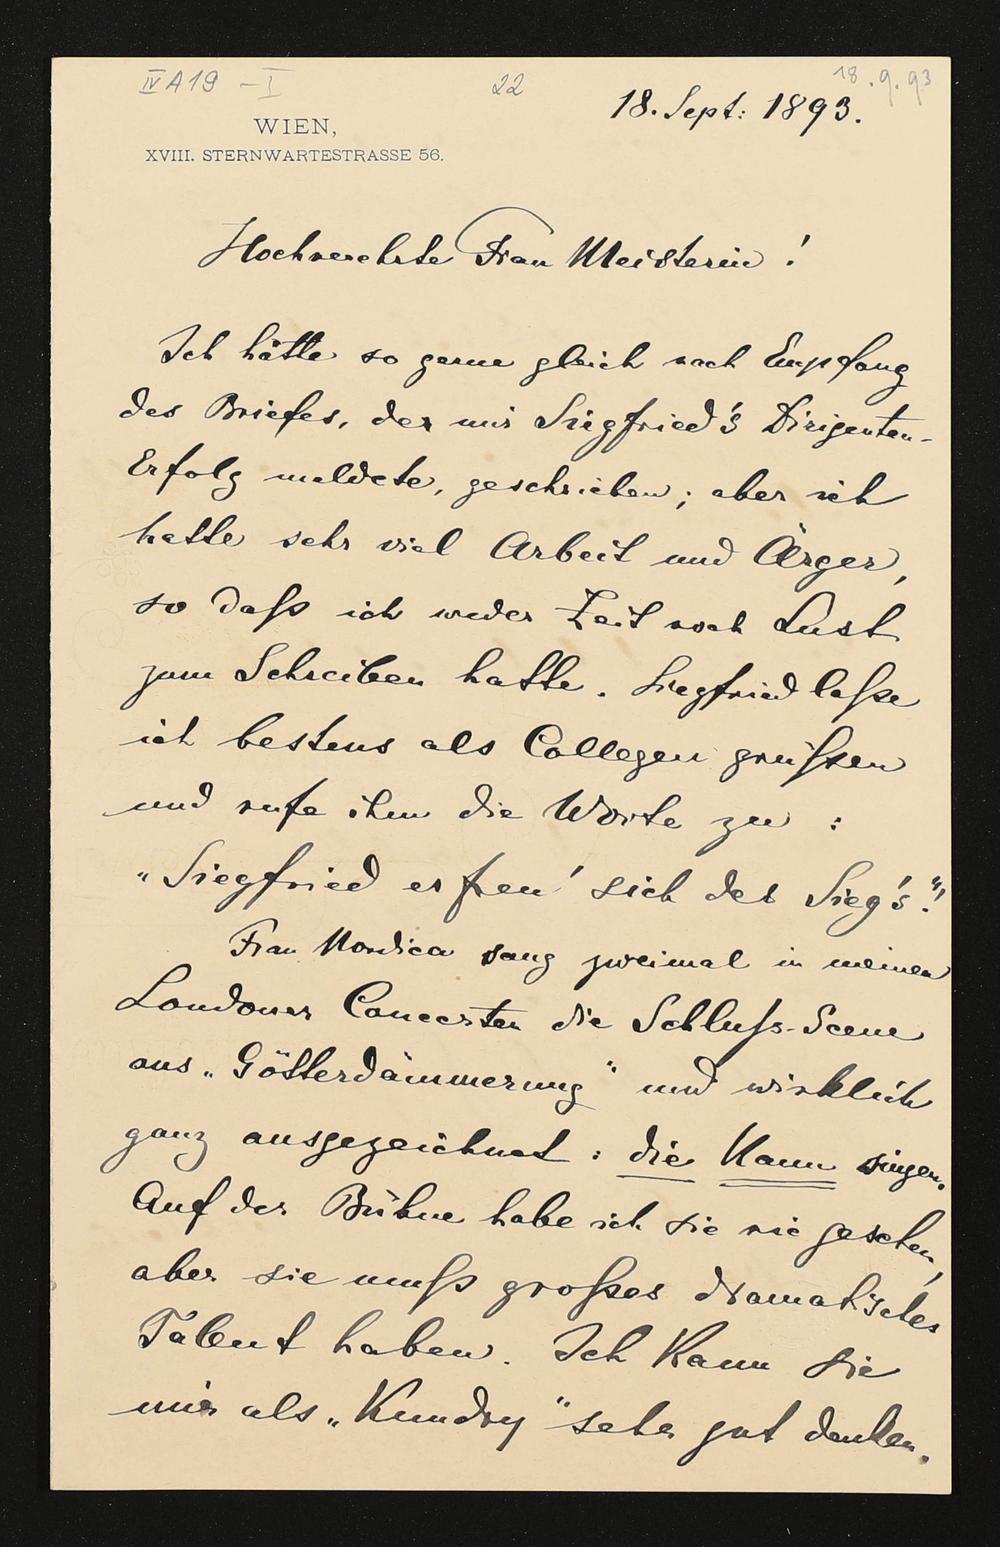 IV A 19 - I
22
18.9.93
18. Sept: 1893.
WIEN,
XVIII. STERNWARTESTRASSE 56.
Hochverehrte Frau Meisterin!
Ich hätte so gerne gleich nach Empfang
des Briefes, der mir Siegfried's Dirigenten-
Erfolg meldete, geschrieben; aber ich
hatte sehr viel Arbeit und Ärger,
so daß ich weder Zeit noch Lust
zum Schreiben hatte. Siegfried laße
ich bestens als Collegen grüßen
und rufe ihm die Worte zu :
„Siegfried erfreu' sich des Sieg's!"
Frau Nordica sang zweimal in meinen
Londoner Concerten die Schluß-Scene
aus „Götterdämmerung" und wirklich
ganz ausgezeichnet : die Kann singen.
Auf der Bühne habe ich sie nie gesehen,
aber sie muß großes dramatisches
Talent haben. Ich Kann sie
mir als „Kundry" sehr gut denken.